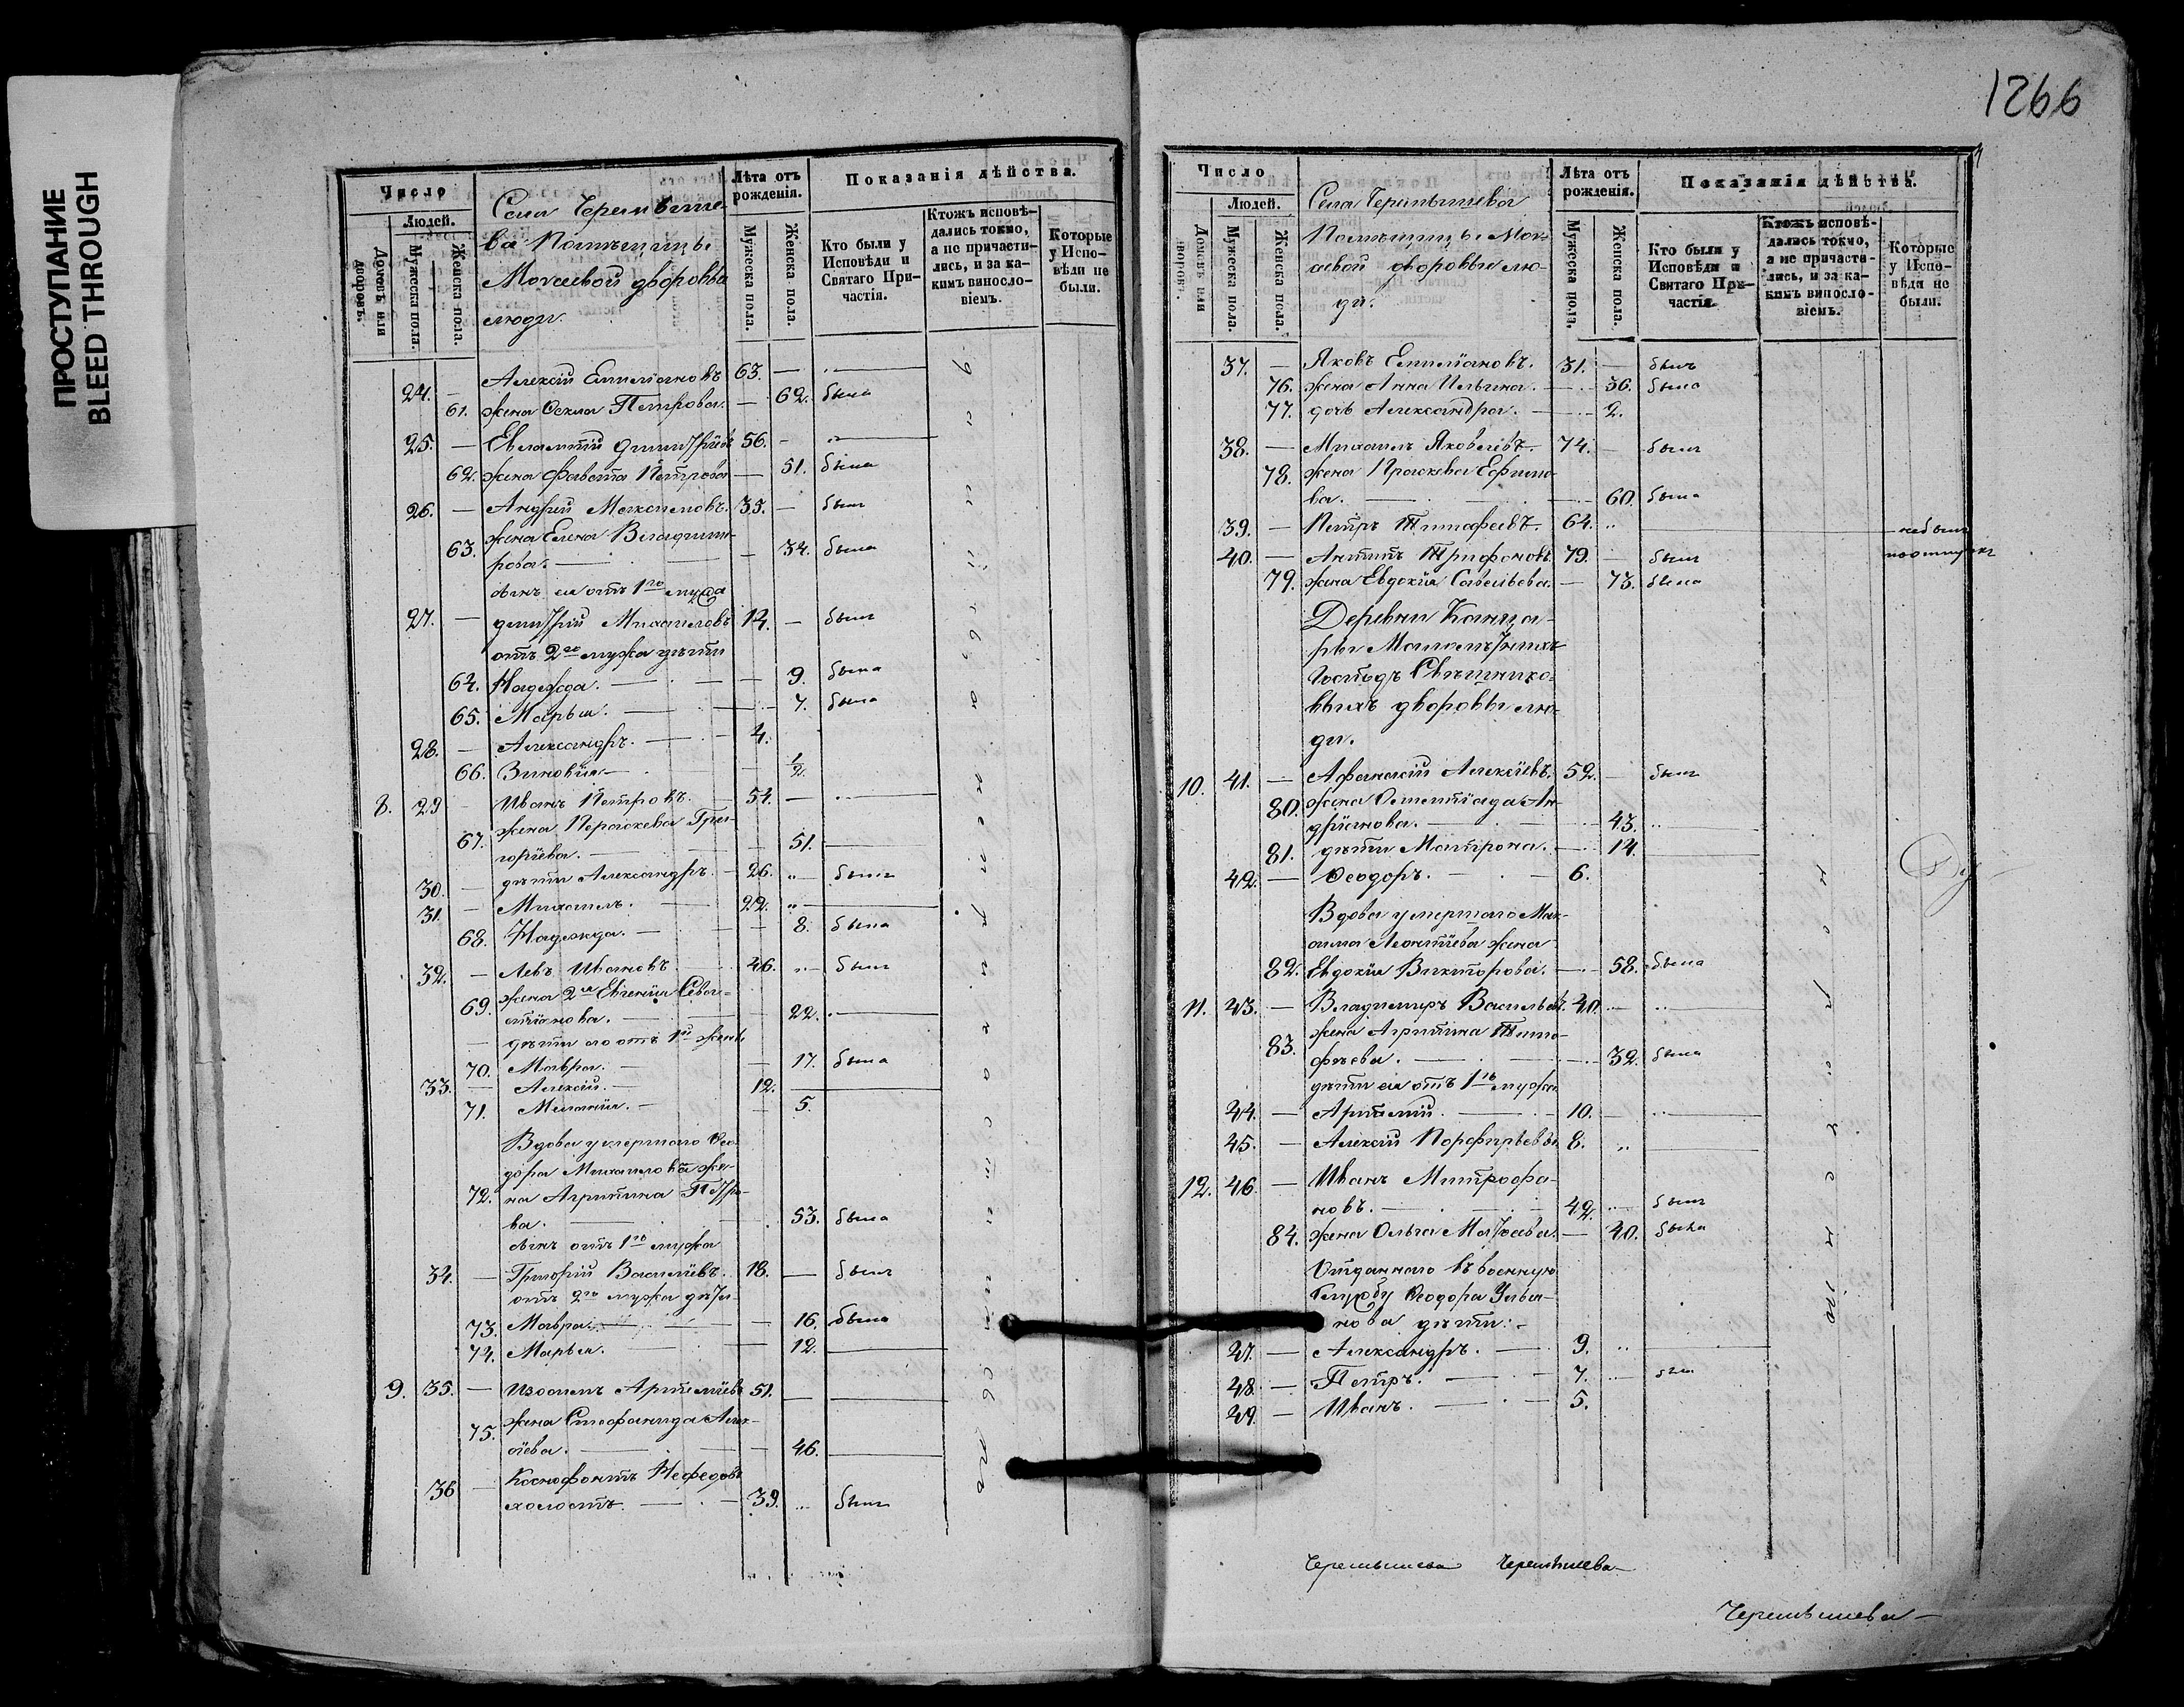 ПРОСТУПАНИЕ
BLEED THROUGH
1266
Число
Людей.
Домовъ или дворовъ.
Мужеска пола.
Женска пола.
Села Черемыше-
ва Помѣщицы
дворовые
люди.
Лѣта отъ рожденія.
Мужеска пола.
Женска пола.
Показанія дѣйства.
Кто были у Исповѣди и Святаго Причастія.
Ктожъ исповѣ-
дались токмо,
а не причасти-
лись, и за ка-
кимъ винословіемъ.
Которые
у Испо-
вѣди не
были.
24. — Алексій Емиліановъ 63. —
61. жена Ѳекла Петрова. — 62. была
25. — Евлампій Димитріевъ 56. —
62. жена Петрова — 51. была
26. — Андрей Максимовъ. 35. — былъ
63. жена Елена Владими-
рова. — 34. была
сынъ ея отъ 1го мужа
27. — Димитрій Михаиловъ 14. — былъ
отъ 2го мужа дѣти
64. Надежда. — 9. была
65. Марья. — 7. была
28. — Александръ. — 4.
66. Зиновія — 1/2
8. 29 — Иванъ Петровъ. 54. —
67. жена Параскева Григ-
горіева. — 51.
30. — дѣти Александръ. — 26. " былъ
31. — Михаилъ. — 22. "
68. Надежда. — 8. была
32. — Левъ Ивановъ. 46. былъ
69. жена 2я Евгенія Севас-
тіанова. — 22.
— дѣти его отъ 1й жены
70. Мавра. — 17. была
33. — Алексій. — 12.
71. Меланія. — 5.
Вдова умершаго Ѳео-
дора Михаилова же-
72. на Агрипина Петро-
ва. — 53. была
сынъ отъ 1го мужа
34. — Григорій Василіевъ. 18. — былъ
отъ 2го мужа дѣти
73. Мавра. — 16. была
74. Марья. — 12.
9. 35. — Изосимъ Артеміевъ 51. —
75. жена Стефанида Алек-
сіева. — 46.
36 — Ксенофонтъ Нефедовъ
холостъ. — 39. " былъ
Число
Людей.
Домовъ или дворовъ.
Мужеска пола.
Женска пола.
Села Черемышева
Помѣщицы
дворовые лю-
ди.
Лѣта отъ рожденія.
Мужеска пола.
Женска пола.
Показанія дѣйства.
Кто были у Исповѣди и Святаго Причастія.
Ктожъ исповѣ-
дались токмо,
а не причасти-
лись, и за ка-
кимъ винословіемъ.
Которые
у Испо-
вѣди не
были.
37. — Яковъ Емиліановъ. 31. — былъ
76. жена Анна Ильина. — 36. была
77. дочь Александра. — 2.
38. — Михаилъ Яковлевъ. 74. — былъ
78. жена Праскева Ефимо-
ва. — 60. была
39. — Петръ Тимофеевъ. 64. " небылъ
40. — Антипъ Трифоновъ 79. — былъ
79. жена Евдокія Савельева. — 73. была
Деревни
Помѣщиковъ
Господъ
выхъ дворовые лю-
ди.
10. 41. — Афанасій Алексіевъ. 52. — былъ
80. жена Ан-
дріанова. — 43. "
81. дѣти Матрона. — 14.
42. — Ѳеодоръ. — 6.
Вдова умершаго Мак-
сима Леонтіева жена
82. Евдокія Викторова. — 58. была
11. 43. — Владимиръ Васильевъ. 40. —
83. жена Агрипина Тимо-
фѣева. — 32. была
дѣти ея отъ 1го мужа
44. — Артемій. — 10. —
45. — Алексій Порфирьевъ. 8. "
12. 46. — Иванъ Митрофа-
новъ. — 42. — былъ
84. жена Ольга Матвѣева. — 40. была
Отданнаго въ военную
службу Ѳеодора Улья-
нова дѣти: —
47. — Александръ. — 9. "
48. — Петръ. — 7. — былъ
49. — Иванъ. — 5.
Черемышева Черемышева
Черемышева